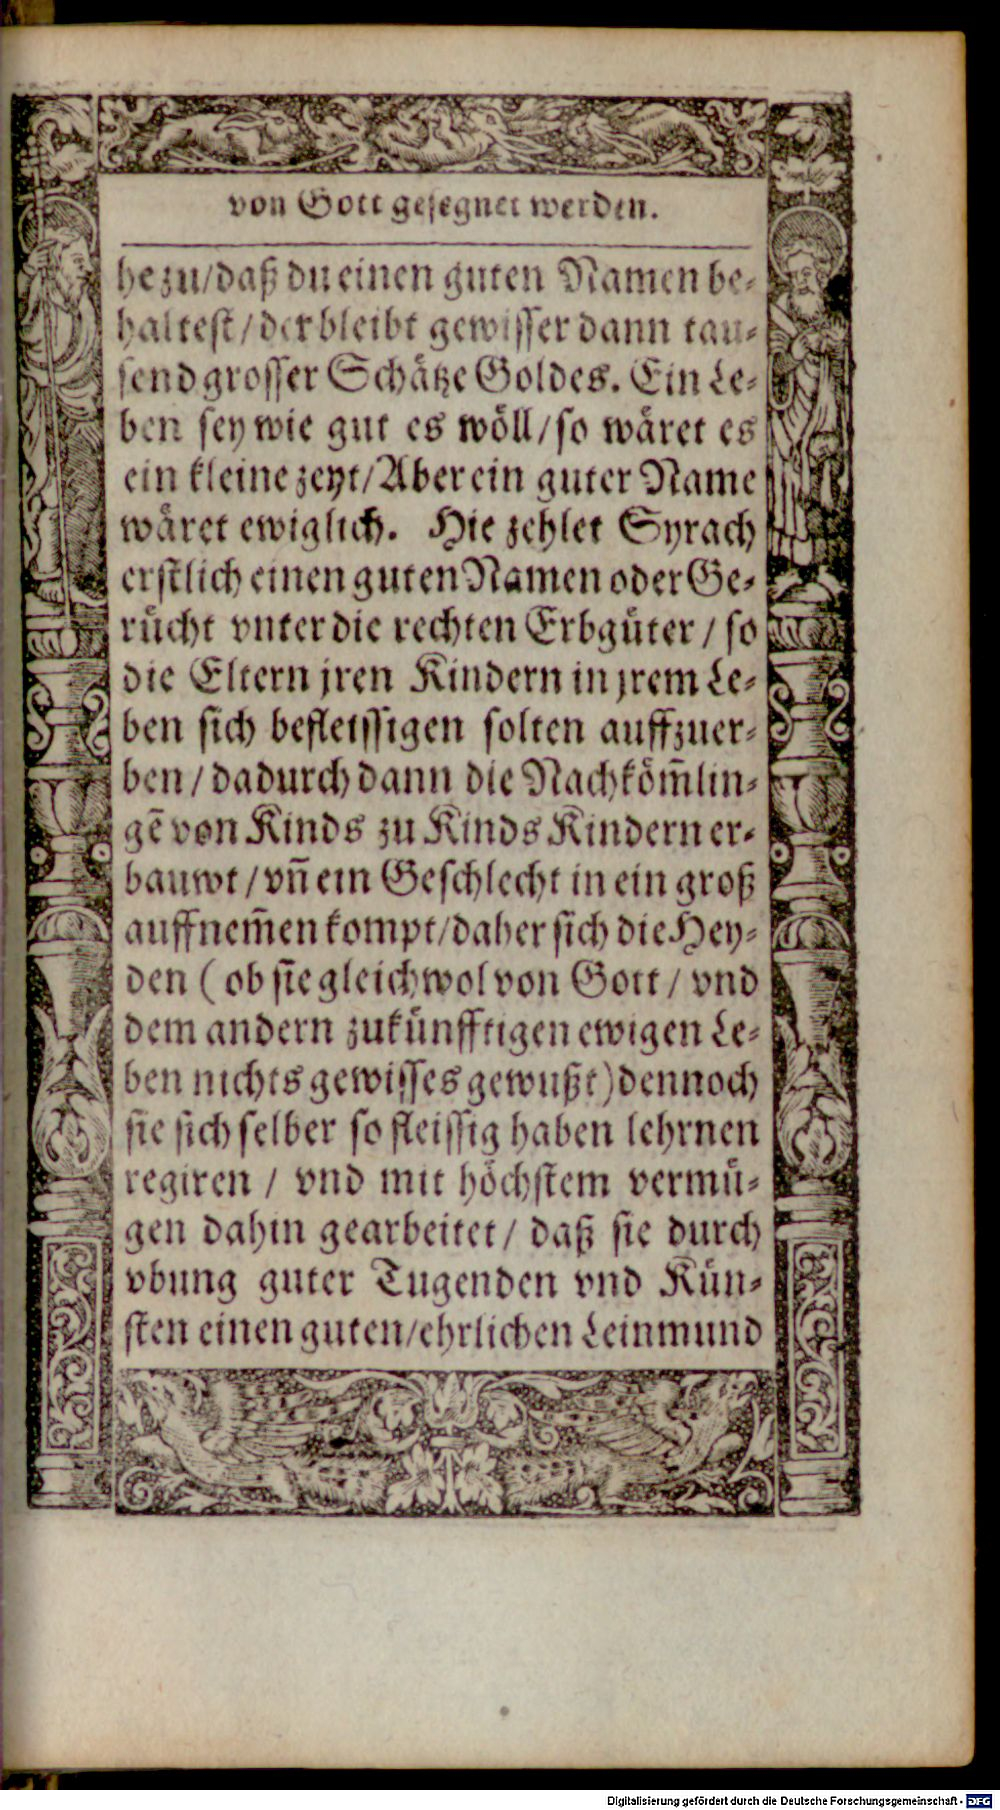 von Gott gesegnet werden.
he zu/daß du einen guten Namen be⸗
haltest/der bleibt gewisser dann tau⸗
send grosser Schätze Goldes. Ein Le⸗
ben sey wie gut es wöll/so wäret es
ein kleine zeyt/Aber ein guter Name
wäret ewiglich. Hie zehlet Syrach
erstlich einen guten Namen oder Ge⸗
rücht vnter die rechten Erbgüter / so
die Eltern jren Kindern in jrem Le⸗
ben sich befleissigen solten auffzuer⸗
ben/dadurch dann die Nachköm̃lin⸗
gẽ von Kinds zu Kinds Kindern er⸗
bauwt/vñ ein Geschlecht in ein groß
auffnem̃en kompt/daher sich die Hey⸗
den (ob sie gleichwol von Gott / vnd
dem andern zukünfftigen ewigen Le⸗
ben nichts gewisses gewußt) dennoch
sie sich selber so fleissig haben lehrnen
regiren / vnd mit höchstem vermü⸗
gen dahin gearbeitet/ daß sie durch
vbung guter Tugenden vnd Kün⸗
sten einen guten/ehrlichen Leinmund
Digitalisierung gefördert durch die Deutsche Forschungsgemeinschaft - DFG